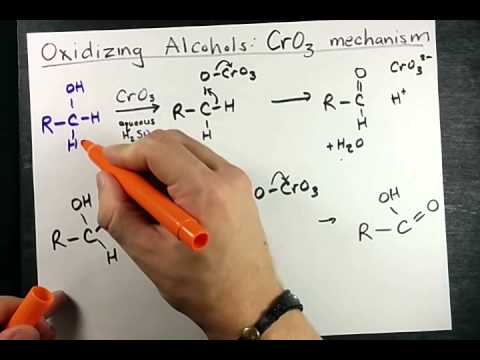 Oxidizing Alcohols: CrO3 mechanism
OH
R-C-H
H
CrO3
aqueous
O-CrO3
C-H
H
O
R-C
H
CrO3²⁻
H⁺
+ H2O
OH
R-C
H
O-CrO3
OH
R-C=O